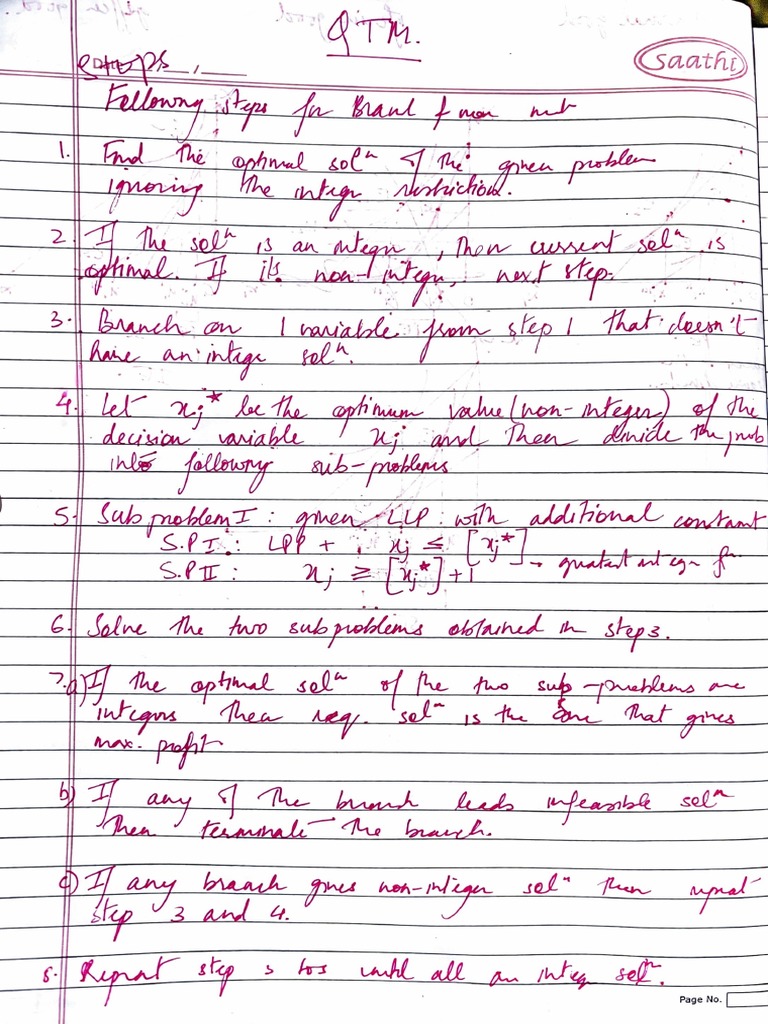 QTM.
Saathi
Steps
Following steps for
1. Find the optimal solⁿ of the given problem
ignoring the integr restriction.
2. If the solⁿ is an integr, then current solⁿ is
optimal. If its non-integr, next step.
3. Branch on 1 variable from step 1 that doesn't
have an integr solⁿ.
4. Let xj* be the optimum value (non-integer) of the
decision variable xj and then divide the prob
into following sub-problems
5. Sub problem I : given LLP with additional constant
S.P I : LPP + xj ≤ [xj*]
S.P II : xj ≥ [xj*]+1 → greatest integr fⁿ
6. Solve the two subproblems obtained in step 3.
7.a) If the optimal solⁿ of the two sub-problems are
integers then req. solⁿ is the one that gives
max. profit
b) If any of the branch leads infeasible solⁿ
then terminate the branch.
c) If any branch gives non-integer solⁿ then repeat
step 3 and 4.
8. Repeat step until all an integr solⁿ.
Page No.